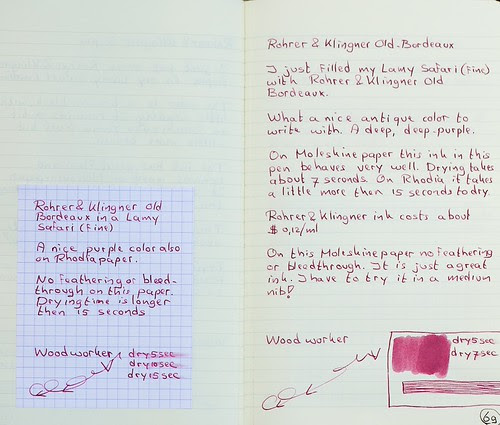 Rohrer & Klingner Old
Bordeaux in a Lamy
Safari (Fine)
A nice purple color also
on Rhodia paper.
No feathering or bleed-
through on this paper.
Drying time is longer
then 15 seconds
Woodworker
dry 5 sec
dry 10 sec
dry 15 sec
Rohrer & Klingner Old-Bordeaux
I just filled my Lamy Safari (Fine)
with Rohrer & Klingner Old
Bordeaux.
What a nice antique color to
write with. A deep, deep purple.
On Moleskine paper this ink in this
pen behaves very well. Drying takes
about 7 seconds. On Rhodia it takes
a little more then 15 seconds to dry.
Rohrer & Klingner ink costs about
$ 0,12/ml
On this Moleskine paper no feathering
or bleedthrough. It is just a great
ink. I have to try it in a medium
nib!
Woodworker
dry 5 sec
dry 7 sec
69